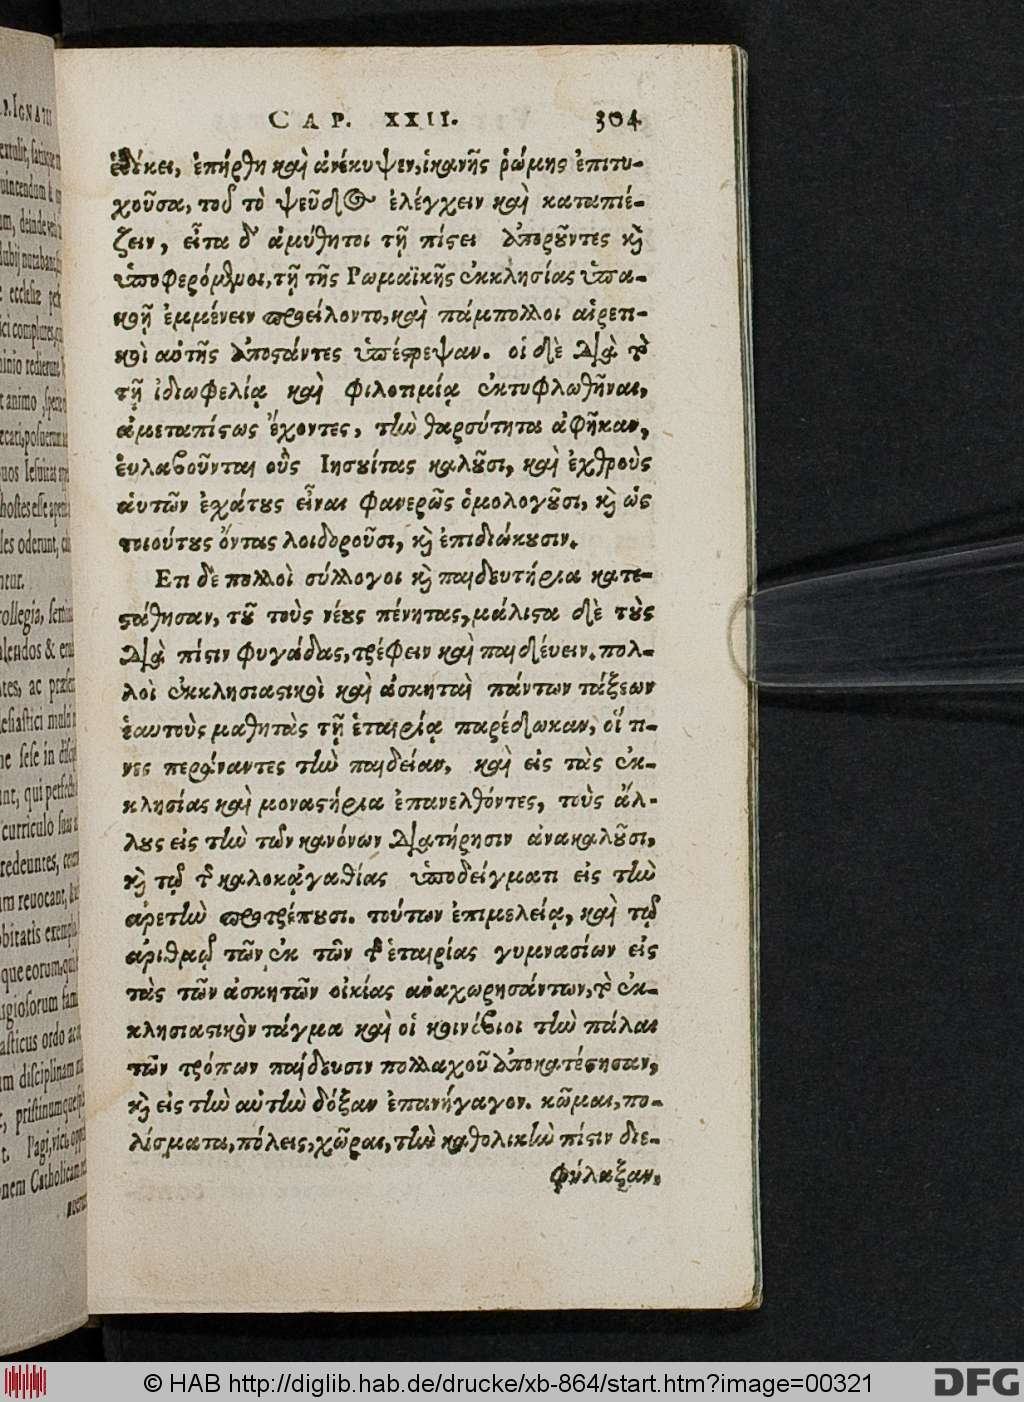 P. IGNATII
CAP. XXII. 304
ἐδόκει, ἐπήρθη καὶ ἀνέκυψεν, ἱκανῆς ῥώμης ἐπιτυ-
χοῦσα, τοῦ τὸ ψεῦδος ἐλέγχειν καὶ καταπιέ-
ζειν, εἶτα δ' ἀμύθητοι τῇ πίστει ἀποροῦντες καὶ
ὑποφερόμενοι, τῇ τῆς Ρωμαϊκῆς ἐκκλησίας ὑπα-
κοῇ ἐμμένειν προείλοντο, καὶ πάμπολλοι αἱρετι-
κοὶ αὐτῆς ἀποστάντες ὑπέστρεψαν. οἱ δὲ διὰ τὸ
τῇ ἰδιωφελίᾳ καὶ φιλοτιμίᾳ ἐκτυφλωθῆναι,
ἀμεταπίστως ἔχοντες, τὴν θαρσύτητα ἀφῆκαν,
εὐλαβοῦνται οὓς Ιησουίτας καλοῦσι, καὶ ἐχθροὺς
αὑτῶν ἐχάτους εἶναι φανερῶς ὁμολογοῦσι, καὶ ὡς
τοιούτους ὄντας λοιδοροῦσι, καὶ ἐπιδιώκουσιν.
Ετι δὲ πολλοὶ σύλλογοι καὶ παιδευτήρια κατε-
στάθησαν, τοῦ τοὺς νέους πένητας, μάλιστα δὲ τοὺς
διὰ πίστιν φυγάδας, τρέφειν καὶ παιδεύειν. πολ-
λοὶ ἐκκλησιαστικοὶ καὶ ἀσκηταὶ πάντων τάξεων
ἑαυτοὺς μαθητὰς τῇ ἑταιρίᾳ παρέδωκαν, οἵ τι-
νες περάναντες τὴν παιδείαν, καὶ εἰς τὰς ἐκ-
κλησίας καὶ μοναστήρια ἐπανελθόντες, τοὺς ἄλ-
λους εἰς τὴν τῶν κανόνων διατήρησιν ἀνακαλοῦσι,
καὶ τῷ τῆς καλοκᾀγαθίας ὑποδείγματι εἰς τὴν
ἀρετὴν προτρέπουσι. τούτων ἐπιμελείᾳ, καὶ τῷ
ἀριθμῷ τῶν ἐκ τῶν τῆς ἑταιρίας γυμνασίων εἰς
τὰς τῶν ἀσκητῶν οἰκίας ἀναχωρησάντων, τὸ ἐκ-
κλησιαστικὸν τάγμα καὶ οἱ κοινόβιοι τὴν πάλαι
τῶν τρόπων παίδευσιν πολλαχοῦ ἀποκατέστησαν,
καὶ εἰς τὴν αὐτὴν δόξαν ἐπανήγαγον. κῶμαι, πο-
λίσματα, πόλεις, χῶραι, τὴν καθολικὴν πίστιν διε-
φύλαξαν,
© HAB http://diglib.hab.de/drucke/xb-864/start.htm?image=00321
DFG